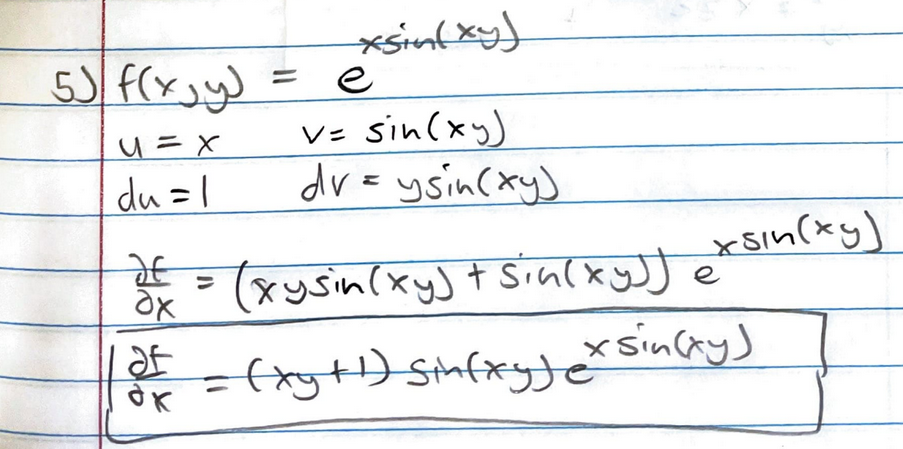 5) f(x,y) = e^{xsin(xy)}
u = x v = sin(xy)
du = 1 dv = ysin(xy)
∂f/∂x = (xysin(xy) + sin(xy)) e^{xsin(xy)}
∂f/∂x = (xy+1) sin(xy) e^{xsin(xy)}